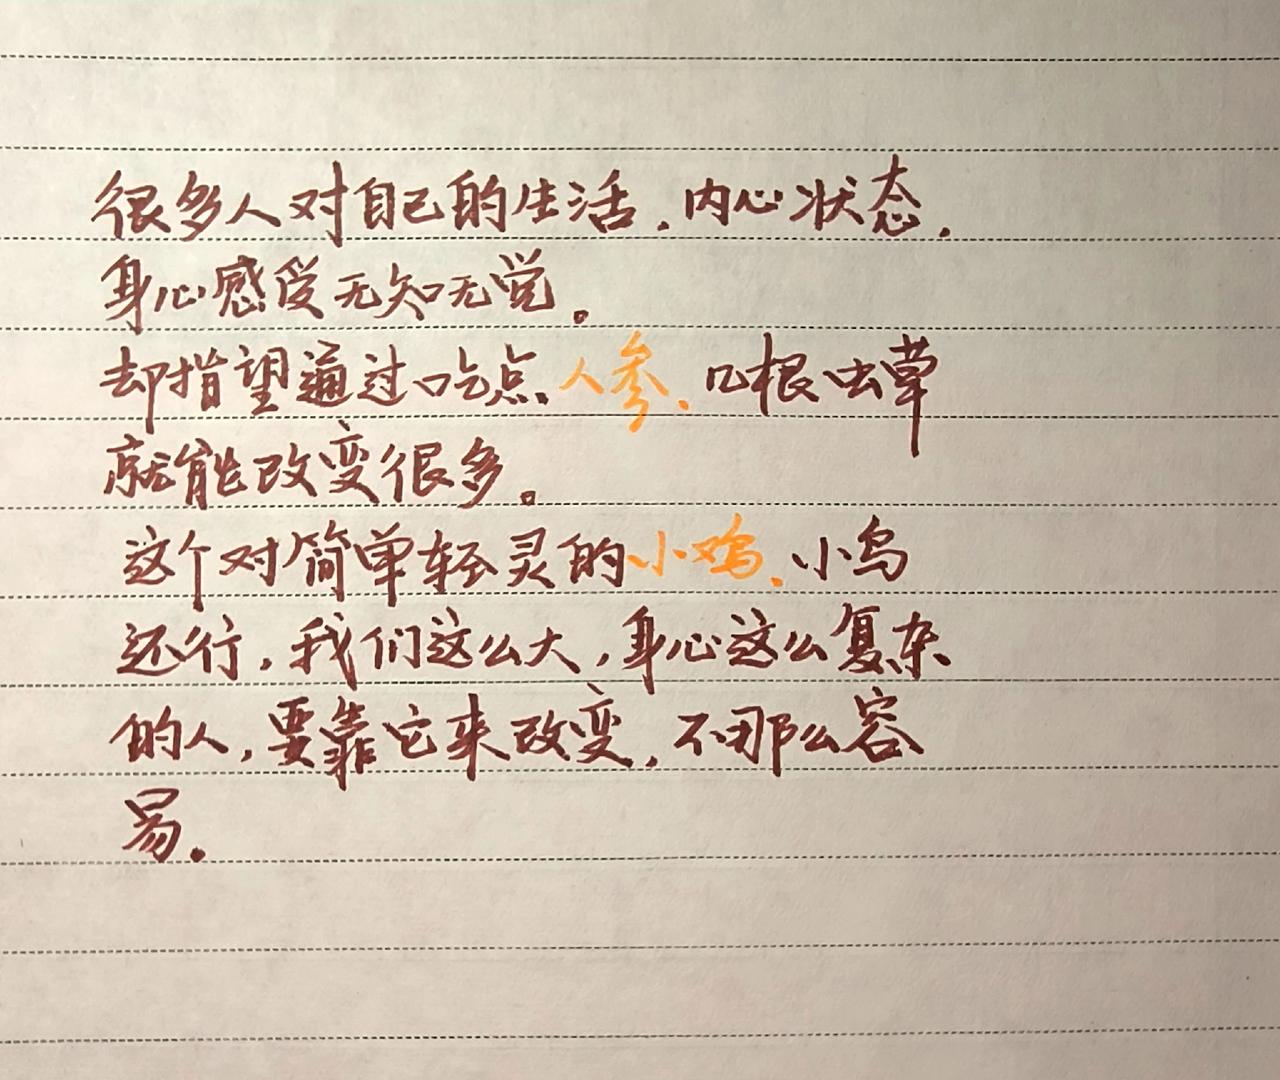 很多人对自己的生活，内心状态，
身心感受无知无觉。
却指望通过吃点人参、几根虫草
就能改变很多。
这个对简单轻灵的小鸡、小鸟
还行，我们这么大，身心这么复杂
的人，要靠它来改变，不那么容
易。